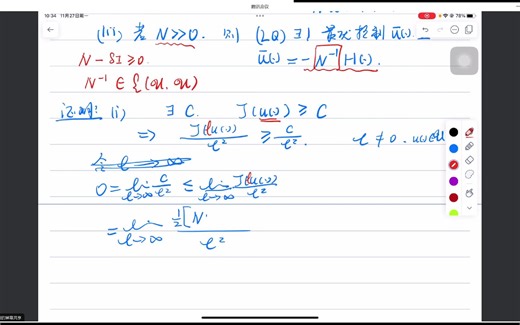 腾讯会议
10:34 11月27日周一
78%
(iii) 若 N>>0. 则 (LQ) ∃1 最优控制 ū(·)
N - δI ≥ 0. ū(·) = -N⁻¹H(·).
N⁻¹ ∈ ℒ(𝒰, 𝒰)
证明: (i) ∃ C. J(u(·)) ≥ C
⇒ J(ℓu(·))/ℓ² ≥ C/ℓ². ℓ ≠ 0. u(·)∈𝒰
令 ℓ → ∞
0 = lim_{ℓ→∞} C/ℓ² ≤ lim_{ℓ→∞} J(ℓu(·))/ℓ²
= lim_{ℓ→∞} ½[N·/ℓ²